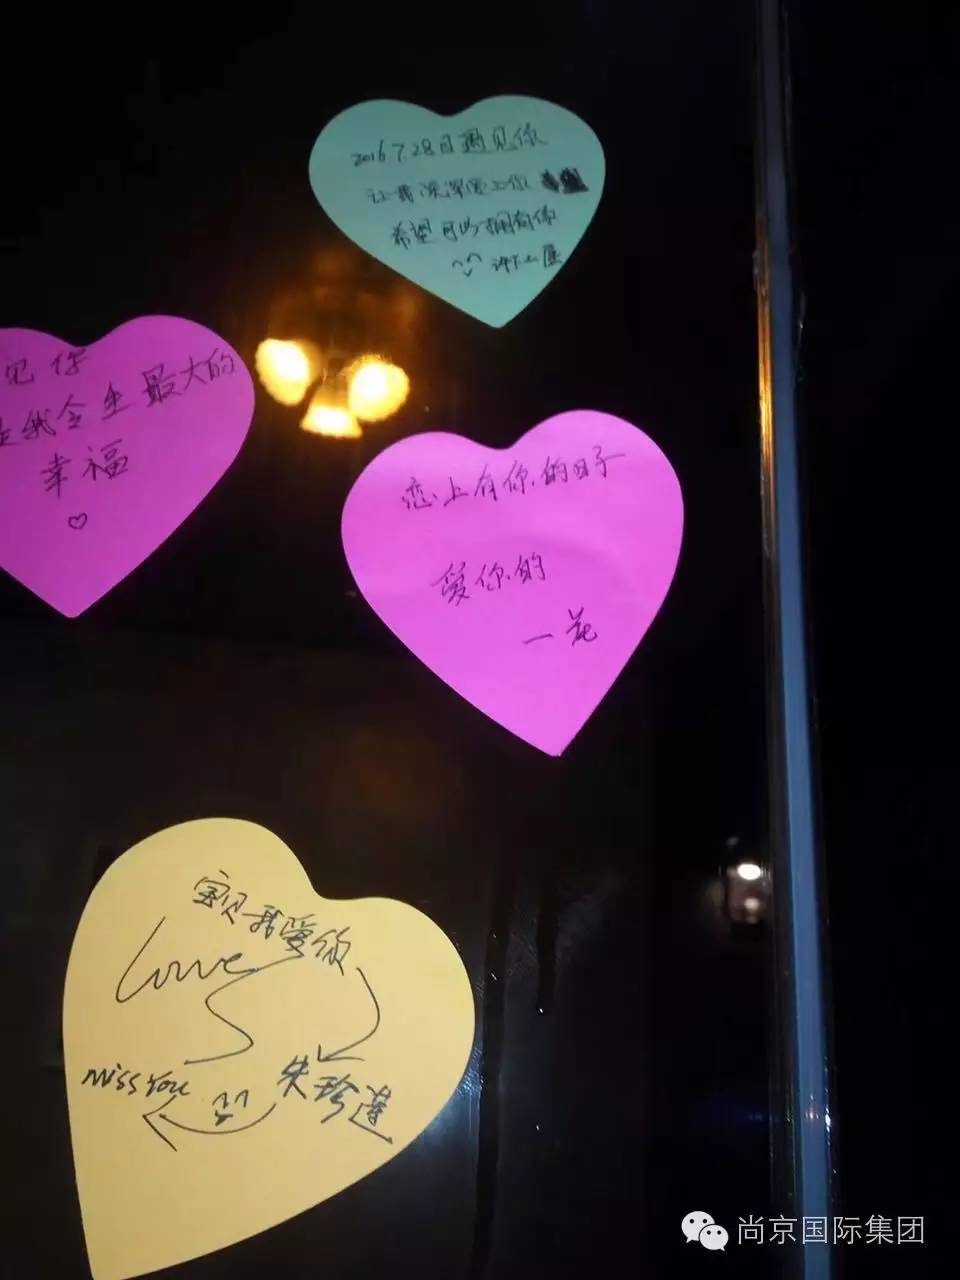 2016.7.28日遇见你
让我深深爱上你
希望可以拥有你
见你
是我今生最大的
幸福
恋上有你的日子
爱你的
一花
宝贝我爱你
Love
miss you
朱珍莲
尚京国际集团